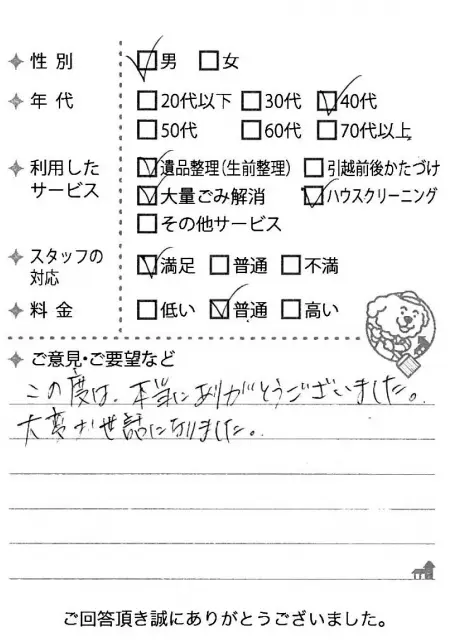 性別 ☑男 ☐女
年代 ☐20代以下 ☐30代 ☑40代
☐50代 ☐60代 ☐70代以上
利用した ☑遺品整理(生前整理) ☐引越前後かたづけ
サービス ☑大量ごみ解消 ☑ハウスクリーニング
☐その他サービス
スタッフの
対応 ☑満足 ☐普通 ☐不満
料金 ☐低い ☑普通 ☐高い
ご意見・ご要望など
この度は、本当にありがとうございました。
大変お世話になりました。
ご回答頂き誠にありがとうございました。